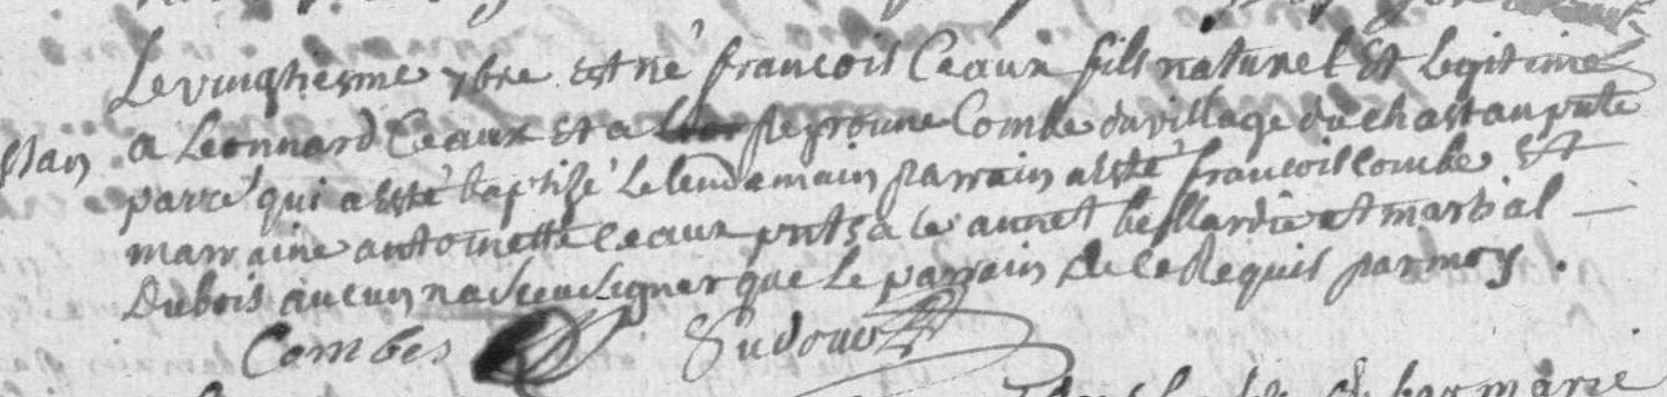 Le vingtiesme 7bre est né francois Ceaux fils naturel et Legitime
a Leonnard Ceaux et a peyronne Combe du village du chastan pnte
parre qui a esté baptisé Le lendemain parrain a esté francois combe et
marraine antoinette ceaux pnts a ce annet et martial
Dubois aucun na sceu signer que Le parrain de ce Requis par moy .
Combes Sudour